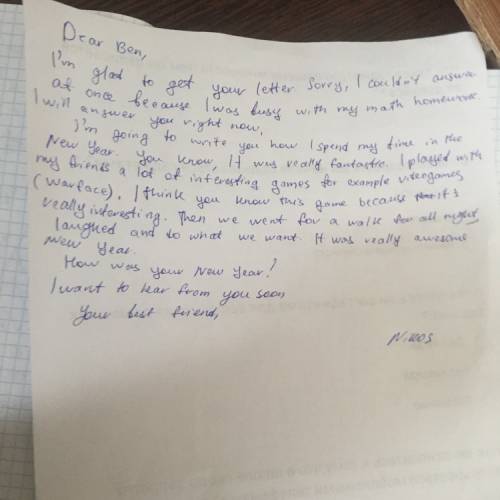 Dear Ben,
I'm glad to get your letter. Sorry, I couldn't answer
at once because I was busy with my math homework.
I will answer you right now,
I'm going to write you how I spend my time in the
New Year. You know, It was really fantastic. I played with
my friends a lot of interesting games for example videogames
(Warface). I think you know this game because it's
really interesting. Then we went for a walk for all night,
laughed and do what we want. It was really awesome
New Year.
How was your New Year?
I want to hear from you soon
Your best friend,
Nikos